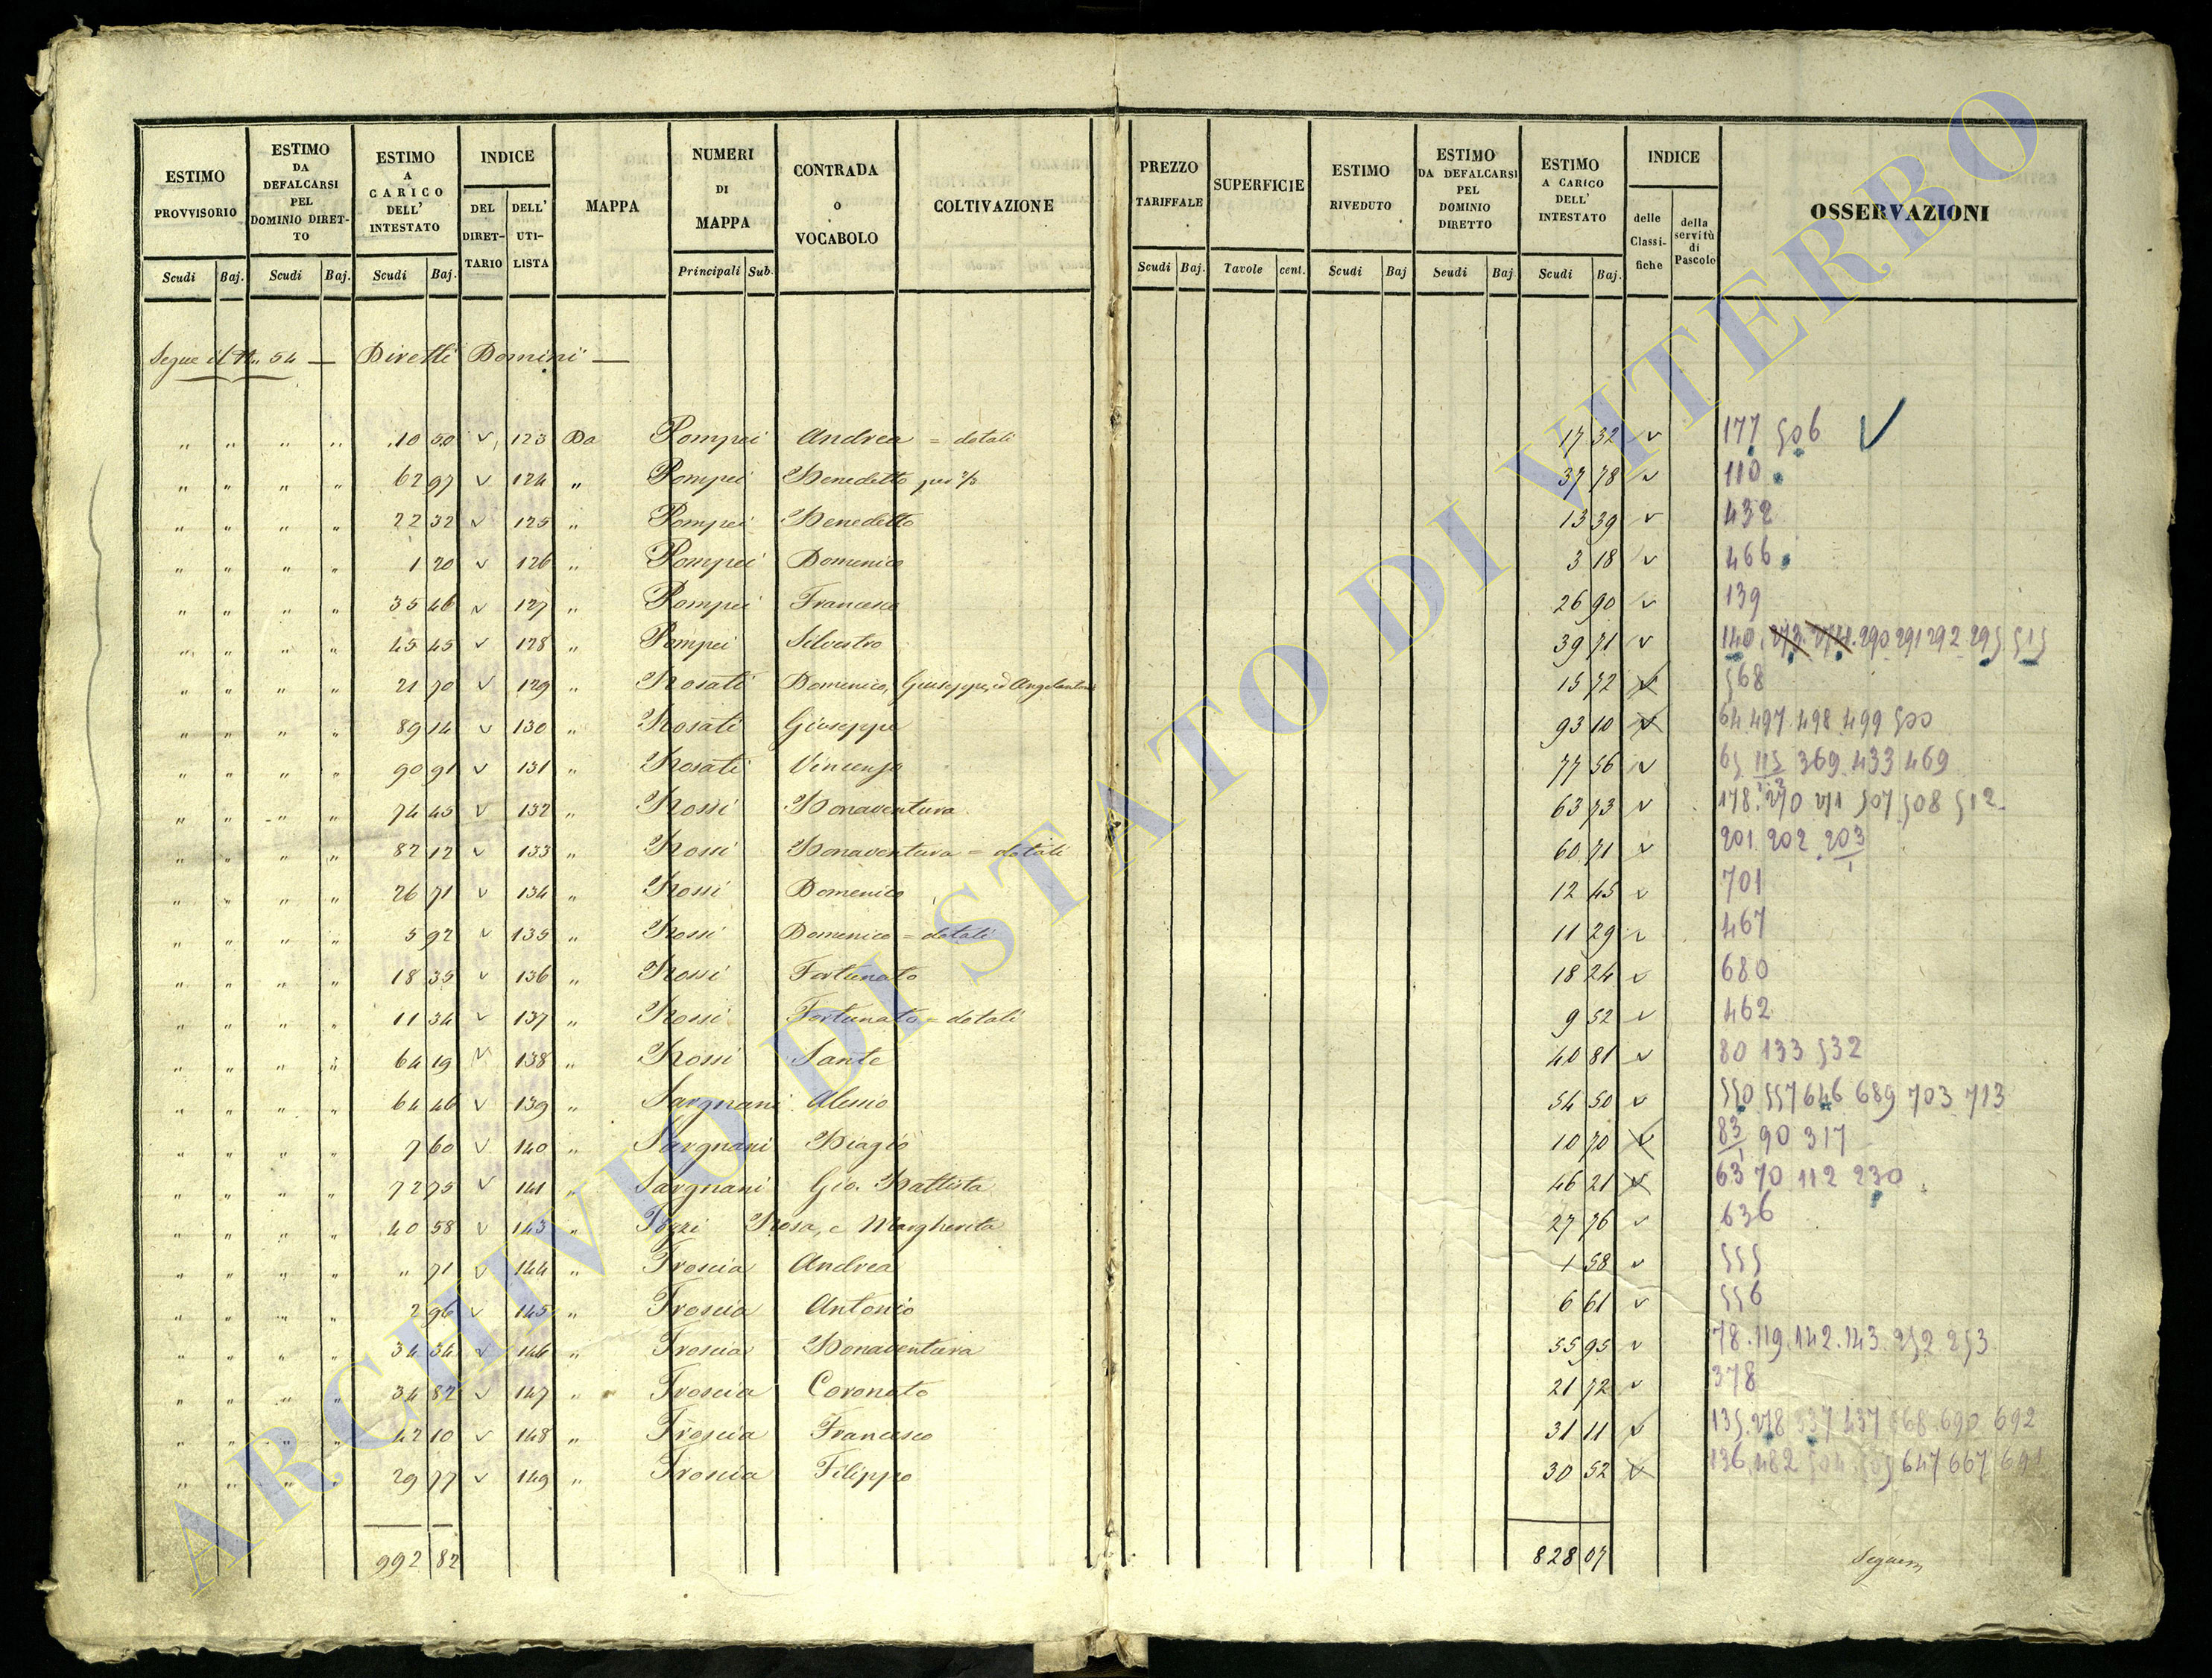 ESTIMO PROVVISORIO
ESTIMO DA DEFALCARSI PEL DOMINIO DIRET-TO
ESTIMO A CARICO DELL' INTESTATO
INDICE
DEL DIRET-TARIO
DELL' UTI-LISTA
MAPPA
NUMERI DI MAPPA
CONTRADA o VOCABOLO
COLTIVAZIONE
PREZZO TARIFFALE
SUPERFICIE
ESTIMO RIVEDUTO
ESTIMO DA DEFALCARSI PEL DOMINIO DIRETTO
ESTIMO A CARICO DELL' INTESTATO
INDICE
delle Classi-fiche
della servitù di Pascolo
OSSERVAZIONI
Scudi Baj. Scudi Baj. Scudi Baj. Principali Sub. Scudi Baj. Tavole cent. Scudi Baj Scudi Baj Scudi Baj.
Segue il N. 54 — Diretti Domini —
" " " " 10 50 123 Da Pompei Andrea = dotali 17 32 177 506
" " " " 62 97 124 " Pompei Benedetto 37 78 110
" " " " 22 32 125 " Pompei Benedetto 13 39 432
" " " " 1 20 126 " Pompei Domenico 3 18 466
" " " " 35 46 127 " Pompei Francesco 26 90 139
" " " " 45 45 128 " Pompei Silvestro 39 71 140 273 274 290 291 292 295 515
" " " " 21 70 129 " Rosati Domenico, Giuseppe, ed Angelantonio 15 72 568
" " " " 89 14 130 " Rosati Giuseppe 93 10 64 497 498 499 500
" " " " 90 91 131 " Rosati Vincenzo 77 56 65 115 369 433 469
" " " " 74 45 132 " Rossi Bonaventura 63 73 178 270 271 507 508 512
" " " " 82 12 133 " Rossi Bonaventura = dotali 60 71 201 202 203/1
" " " " 26 71 134 " Rossi Domenico 12 45 701
" " " " 5 92 135 " Rossi Domenico = dotali 11 29 467
" " " " 18 35 136 " Rossi Fortunato 18 24 680
" " " " 11 34 137 " Rossi Fortunato = dotali 9 52 462
" " " " 64 19 138 " Rossi Sante 40 81 80 133 532
" " " " 64 46 139 " Sargnani Alessio 54 50 550 557 646 689 703 713
" " " " 7 60 140 " Sargnani Biagio 10 70 83/1 90 317
" " " " 72 75 141 " Sargnani Gio. Battista 46 21 63 70 112 230
" " " " 40 58 143 " Rosa, e Margherita 27 76 636
" " " " " 71 144 " Troscia Andrea 1 58 555
" " " " 2 96 145 " Troscia Antonio 6 61 556
" " " " 34 34 146 " Troscia Bonaventura 55 95 78 119 142 143 252 253
" " " " 34 82 147 " Troscia Coronato 21 72 378
" " " " 42 10 148 " Troscia Francesco 31 11 135 278 337 437 668 690 692
" " " " 29 77 149 " Troscia Filippo 30 52 136 482 504 505 647 667 691
992 82 828 07 Seguem
ARCHIVIO DI STATO DI VITERBO